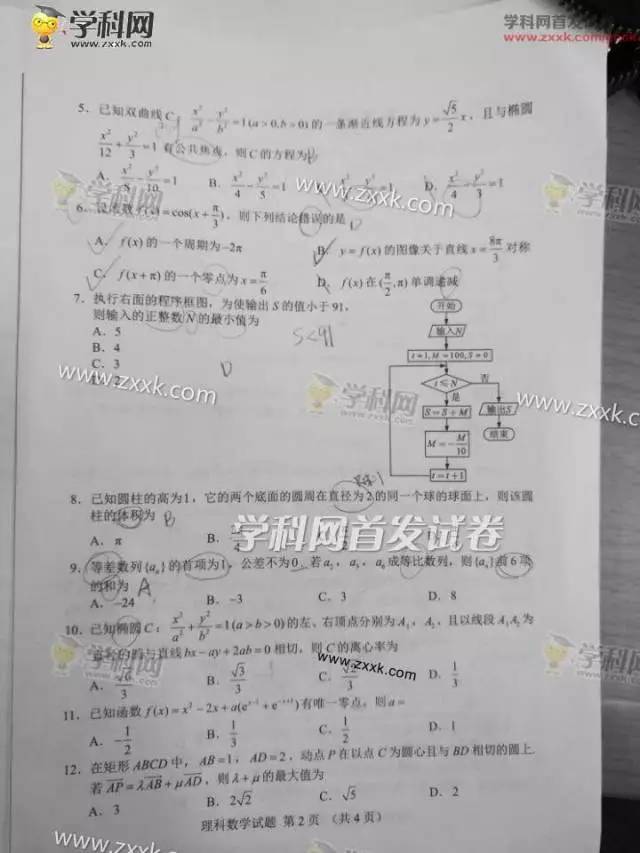 学科网
www.zxxk.com
学科网首发试卷
www.zxxk.com
5. 已知双曲线 C: x²/a² - y²/b² =1(a>0,b>0)的一条渐近线方程为 y= √5/2 x，且与椭圆
x²/12 + y²/3 =1 有公共焦点，则C的方程为
A. x²/8 - y²/10 =1 B. x²/4 - y²/5 =1 D. x²/4 - y²/3 =1
www.zxxk.com
6. =cos(x+ π/3)，则下列结论错误的是 D
A. f(x) 的一个周期为-2π B. y=f(x)的图像关于直线 x= 8π/3 对称
C. f(x+π) 的一个零点为 x= π/6 D. f(x)在(π/2,π)单调递减
7. 执行右面的程序框图，为使输出 S 的值小于 91，
则输入的正整数 N 的最小值为
A. 5
B. 4
C. 3
S<91
D
开始
输入N
t=1,M=100,S=0
t≤N
否
是
S=S+M
输出S
M=-M/10
结束
t=t+1
www.zxxk.com
学科网
www.zxxk.com
8. 已知圆柱的高为1，它的两个底面的圆周在直径为2的同一个球的球面上，则该圆
柱的体积为 B
A. π B. C.
学科网首发试卷
9. 等差数列{aₙ}的首项为1，公差不为0. 若 a₂，a₃，a₆ 成等比数列，则{aₙ}前6项
的和为 A
A. -24 B. -3 C. 3 D. 8
10. 已知椭圆 C: x²/a² + y²/b² =1(a>b>0)的左、右顶点分别为 A₁，A₂，且以线段 A₁A₂为
直径的圆与直线 bx-ay+2ab=0 相切，则 C 的离心率为
A. √6/3 B. √3/3 C. √2/3 D. 1/3
学科网
www.zxxk.com
学科网
11. 已知函数 f(x)=x²-2x+a(eˣ⁻¹+e⁻ˣ⁺¹)有唯一零点，则 a=
A. -1/2 B. 1/3 C. 1/2 D. 1
12. 在矩形 ABCD 中，AB=1，AD=2，动点 P 在以点 C 为圆心且与 BD 相切的圆上.
若 AP=λAB+μAD，则 λ+μ 的最大值为
A. 3 B. 2√2 C. √5 D. 2
理科数学试题 第2页 （共4页）
www.zxxk.com
www.zxxk.com